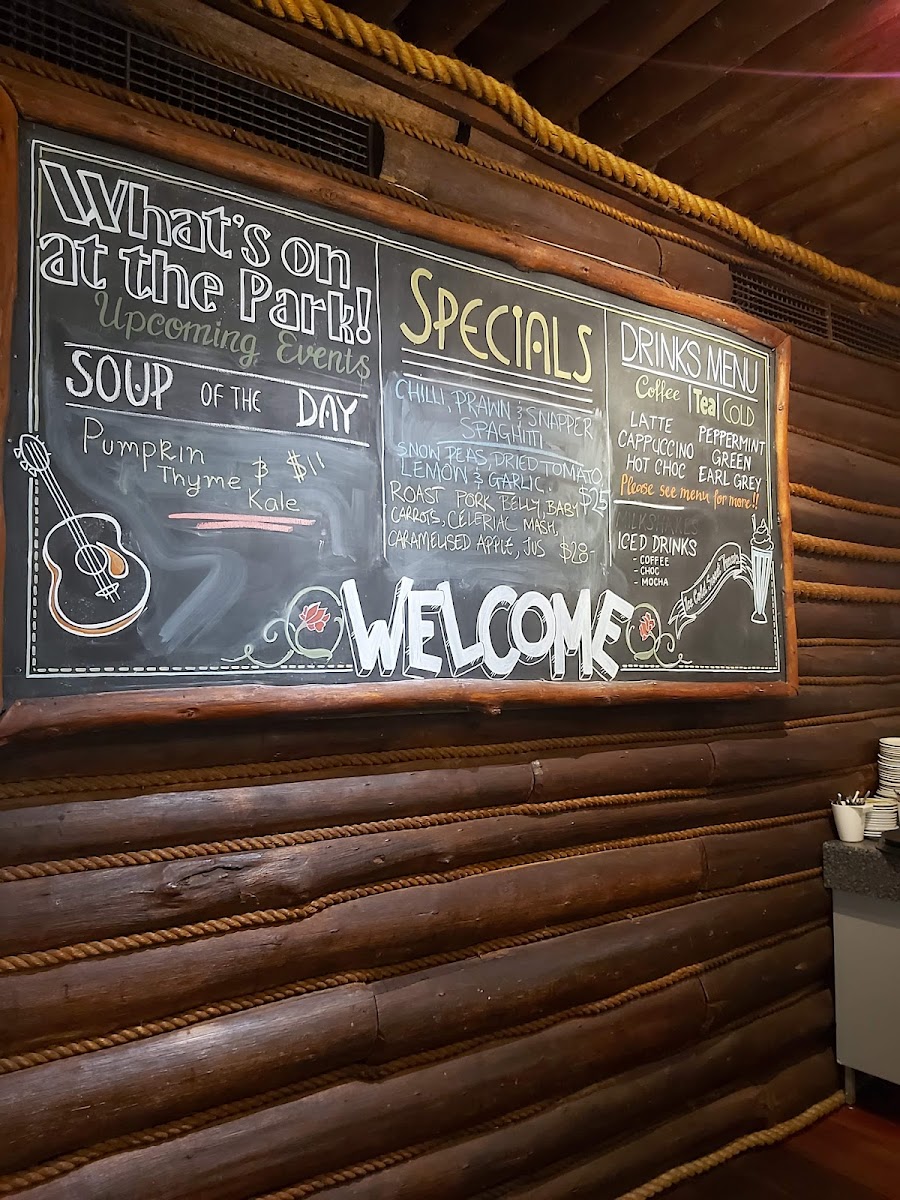 What's on
at the Park!
Upcoming Events
SOUP OF THE DAY
Pumpkin
Thyme & $11
Kale
SPECIALS
CHILLI, PRAWN & SNAPPER
SPAGHITTI
SNOW PEAS, DRIED TOMATO,
LEMON & GARLIC. $25
ROAST PORK BELLY, BABY
CARROTS, CELERIAC MASH,
CARAMELISED APPLE, JUS $28-
DRINKS MENU
Coffee Tea COLD
LATTE PEPPERMINT
CAPPUCCINO GREEN
HOT CHOC EARL GREY
Please see menu for more!!
MILKSHAKES
ICED DRINKS
- COFFEE
- CHOC
- MOCHA
Ice Cold
WELCOME